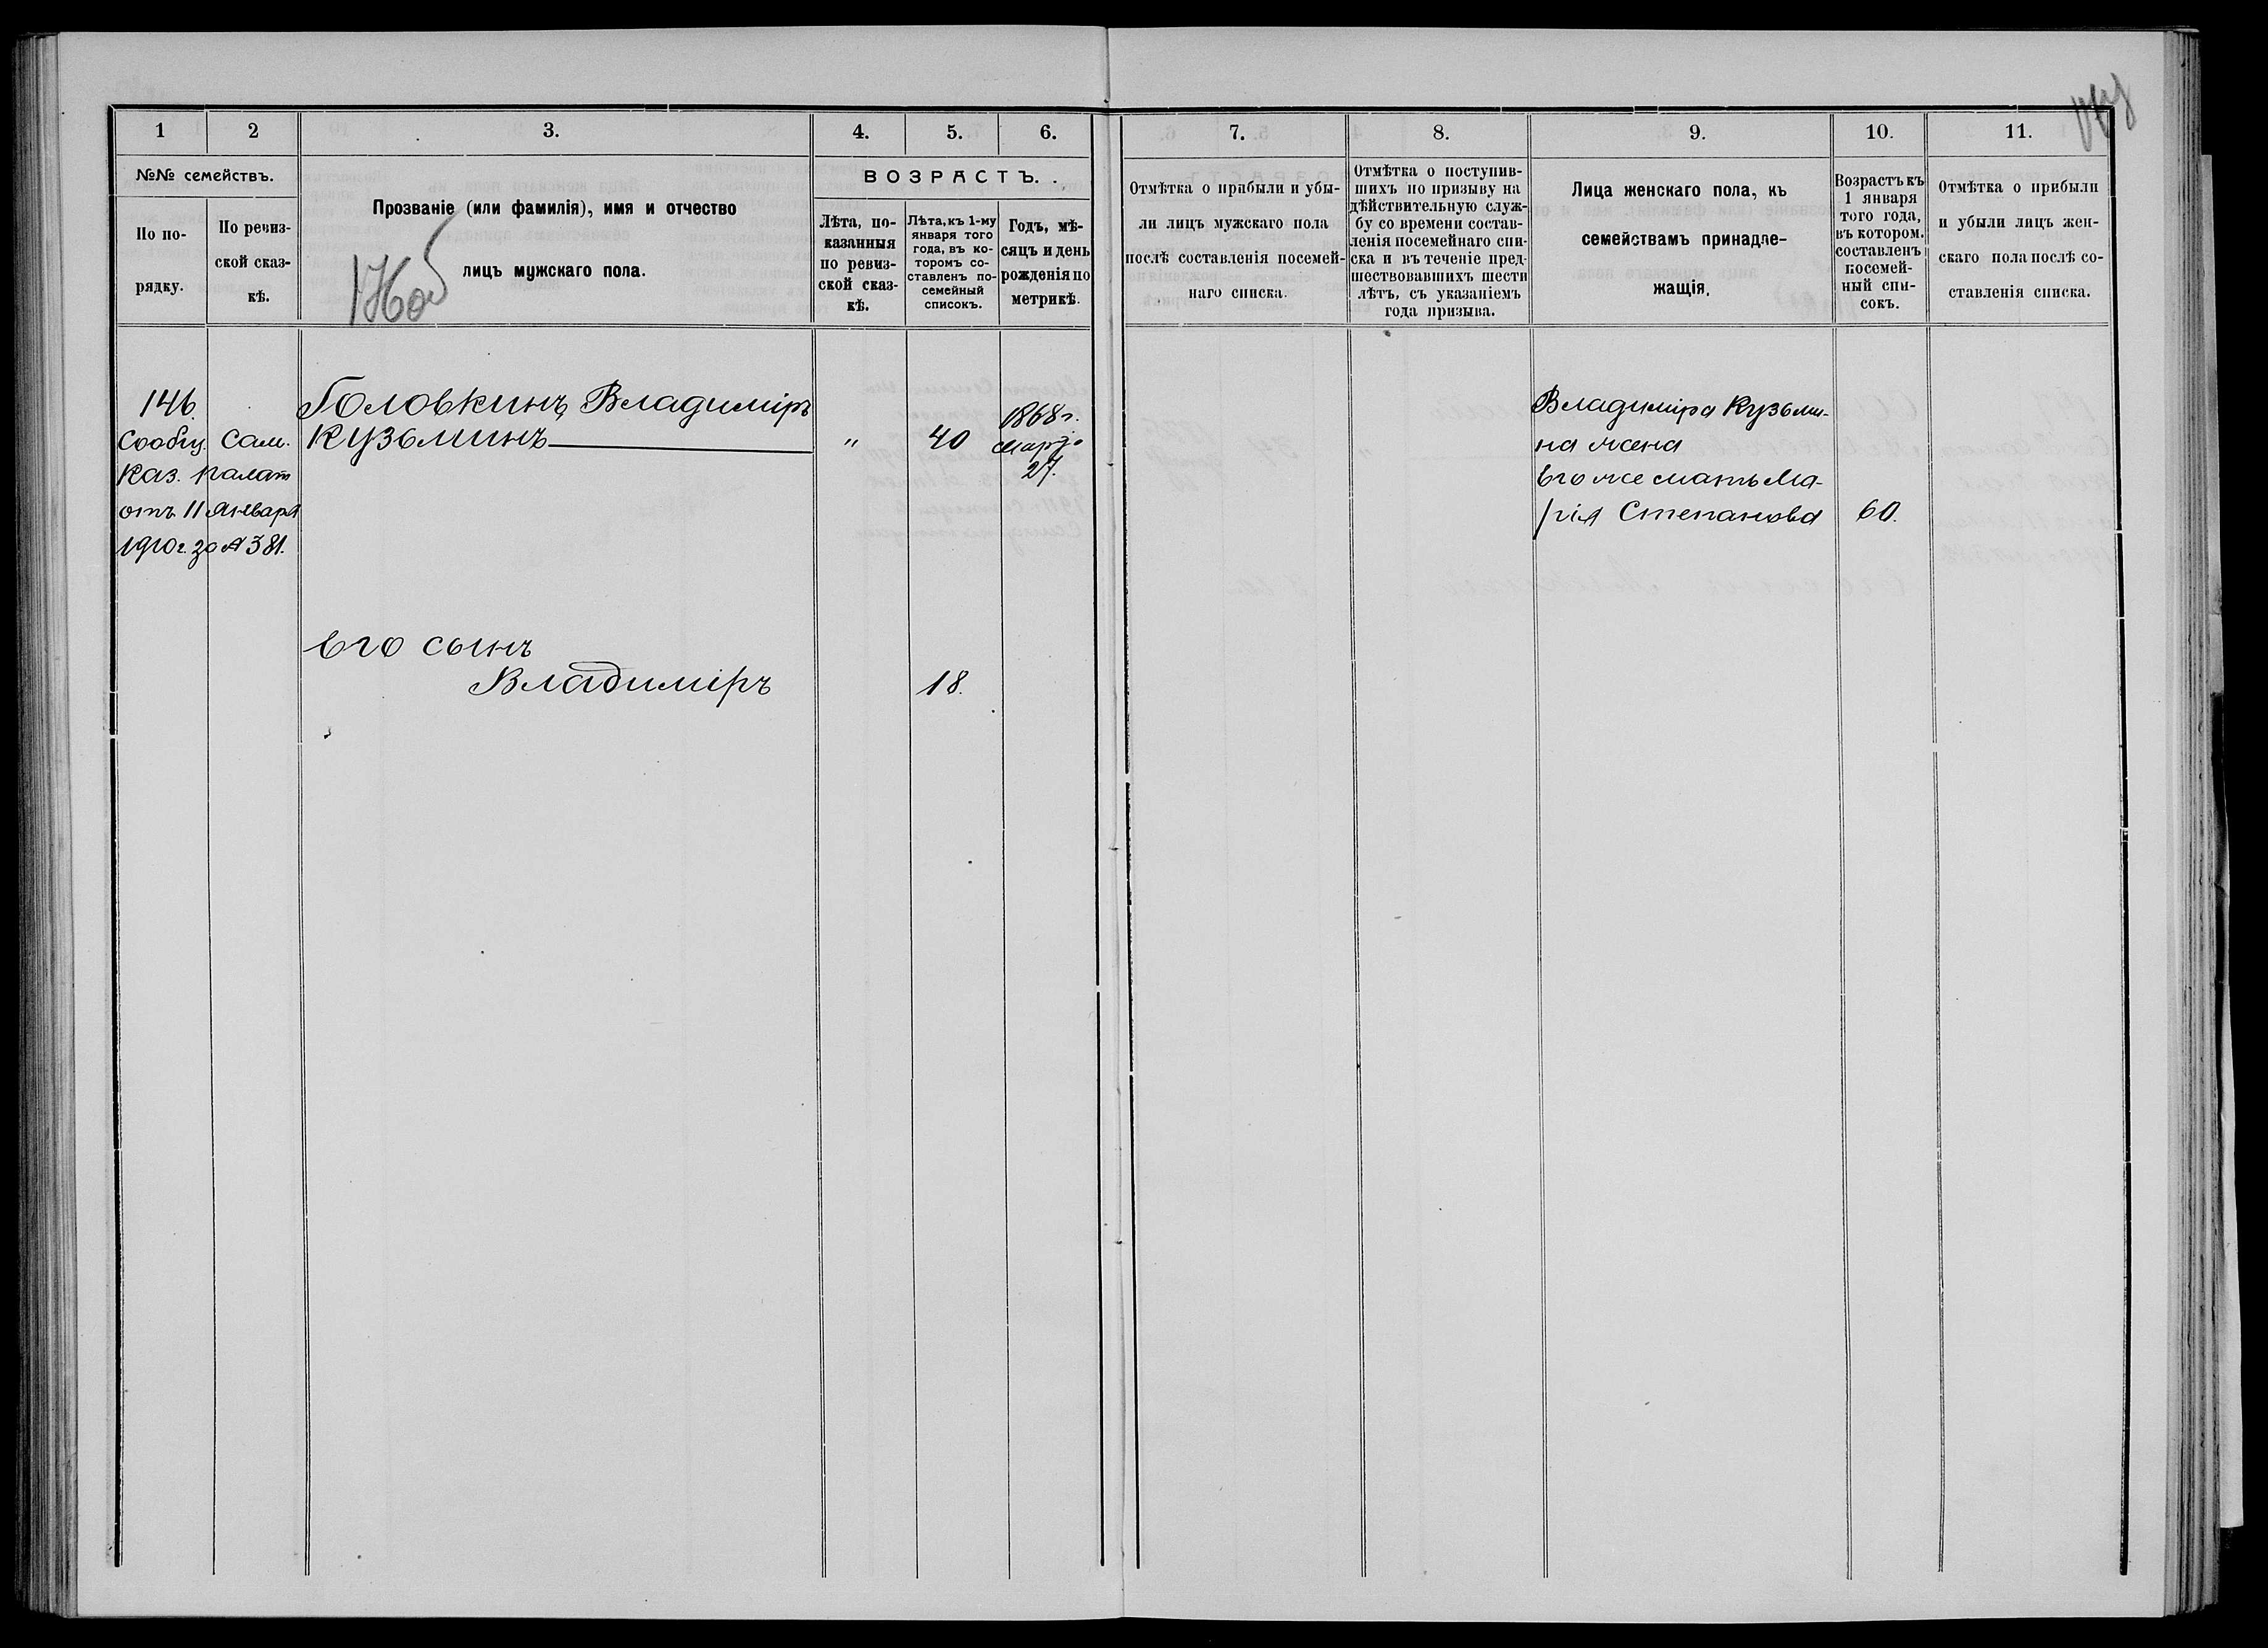 1
2
3.
4.
5.
6.
№№ семействъ.
По по-
рядку.
По ревиз-
ской сказ-
кѣ.
Прозваніе (или фамилія), имя и отчество
лицъ мужскаго пола.
ВОЗРАСТЪ.
Лѣта, по-
казанныя
по ревиз-
ской сказ-
кѣ.
Лѣта, къ 1-му
января того
года, въ ко-
торомъ со-
ставленъ по-
семейный
списокъ.
Годъ, мѣ-
сяцъ и день
рожденія по
метрикѣ.
146.
Сообщ. Сам.
Каз. Палат
отъ 11 Января
1910 г. за № 381.
Головкинъ, Владиміръ
Кузьминъ
"
40
1868 г.
Марта
27.
Его сынъ
Владиміръ
18.
7.
8.
9.
10.
11.
Отмѣтка о прибыли и убы-
ли лицъ мужскаго пола
послѣ составленія посемей-
наго списка.
Отмѣтка о поступив-
шихъ по призыву на
дѣйствительную служ-
бу со времени состав-
ленія посемейнаго спи-
ска и въ теченіе пред-
шествовавшихъ шести
лѣтъ, съ указаніемъ
года призыва.
Лица женскаго пола, къ
семействамъ принадле-
жащія.
Возрастъ къ
1 января
того года,
въ котором.
составленъ
посемей-
ный спи-
сокъ.
Отмѣтка о прибыли
и убыли лицъ жен-
скаго пола послѣ со-
ставленія списка.
Владиміра Кузьми-
на жена
Его же мать Ма-
рія Степанова
60.